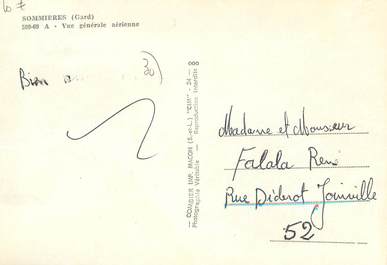 SOMMIERES (Gard)
509-69 A - Vue générale aérienne
30
Bien
COMBIER IMP. MACON (S.-et-L.) "CIM"
Photographie Véritable - Reproduction Interdite
Madame et Monsieur
Falala René
Rue Diderot Joinville
52